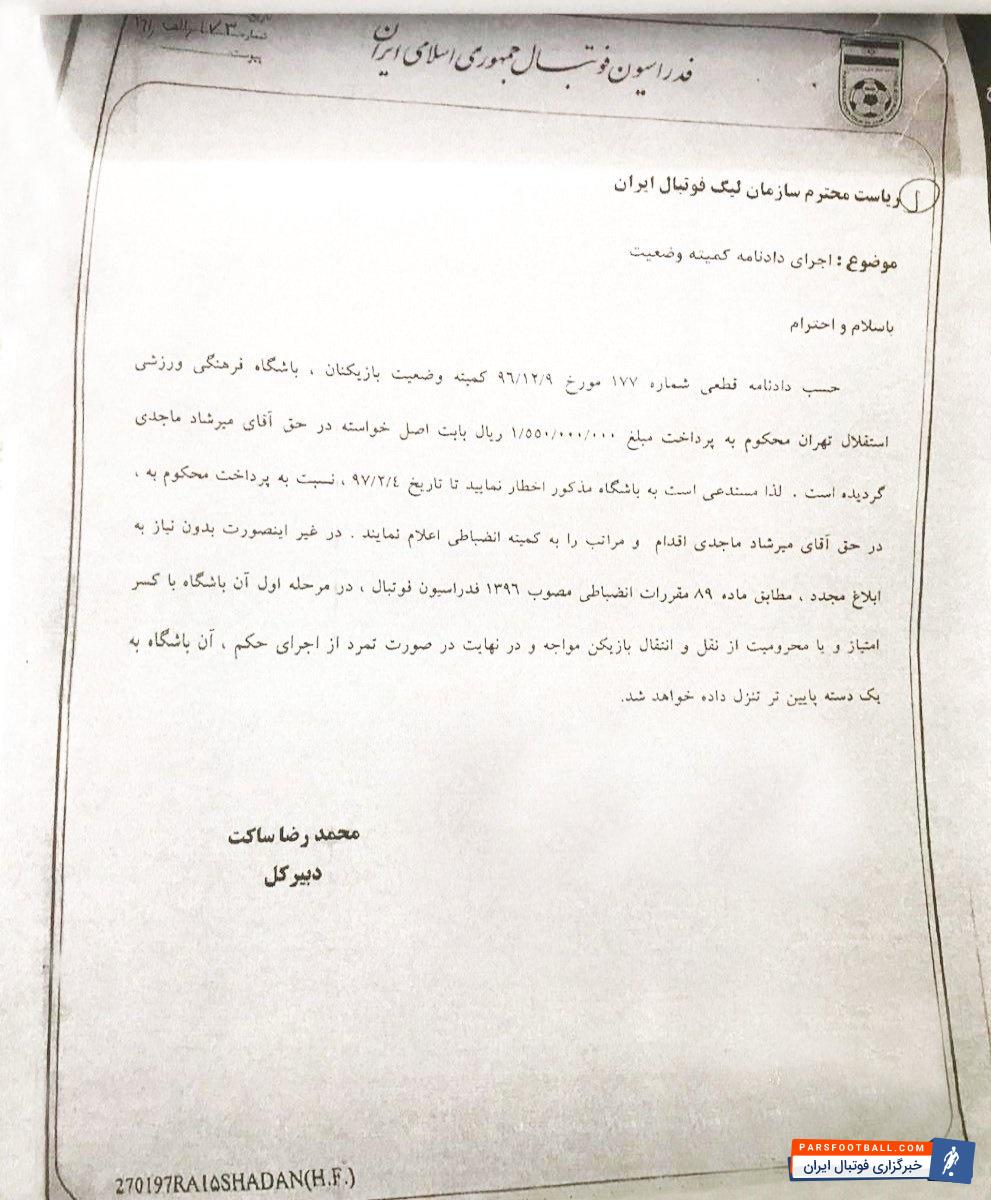 فدراسیون فوتبال جمهوری اسلامی ایران
تاریخ
شماره
پیوست
ریاست محترم سازمان لیگ فوتبال ایران
موضوع : اجرای دادنامه کمیته وضعیت
باسلام و احترام
حسب دادنامه قطعی شماره ۱۷۷ مورخ ۹۶/۱۲/۹ کمیته وضعیت بازیکنان ، باشگاه فرهنگی ورزشی
استقلال تهران محکوم به پرداخت مبلغ ۱/۵۵۰/۰۰۰/۰۰۰ ریال بابت اصل خواسته در حق آقای میرشاد ماجدی
گردیده است . لذا مستدعی است به باشگاه مذکور اخطار نمایید تا تاریخ ۹۷/۲/٤ ، نسبت به پرداخت محکوم به ،
در حق آقای میرشاد ماجدی اقدام و مراتب را به کمیته انضباطی اعلام نمایند . در غیر اینصورت بدون نیاز به
ابلاغ مجدد ، مطابق ماده ۸۹ مقررات انضباطی مصوب ۱۳۹۶ فدراسیون فوتبال ، در مرحله اول آن باشگاه با کسر
امتیاز و یا محرومیت از نقل و انتقال بازیکن مواجه و در نهایت در صورت تمرد از اجرای حکم ، آن باشگاه به
یک دسته پایین تر تنزل داده خواهد شد.
محمد رضا ساکت
دبیر کل
270197RA۱۵SHADAN(H.F.)
PARSFOOTBALL.COM
خبرگزاری فوتبال ایران